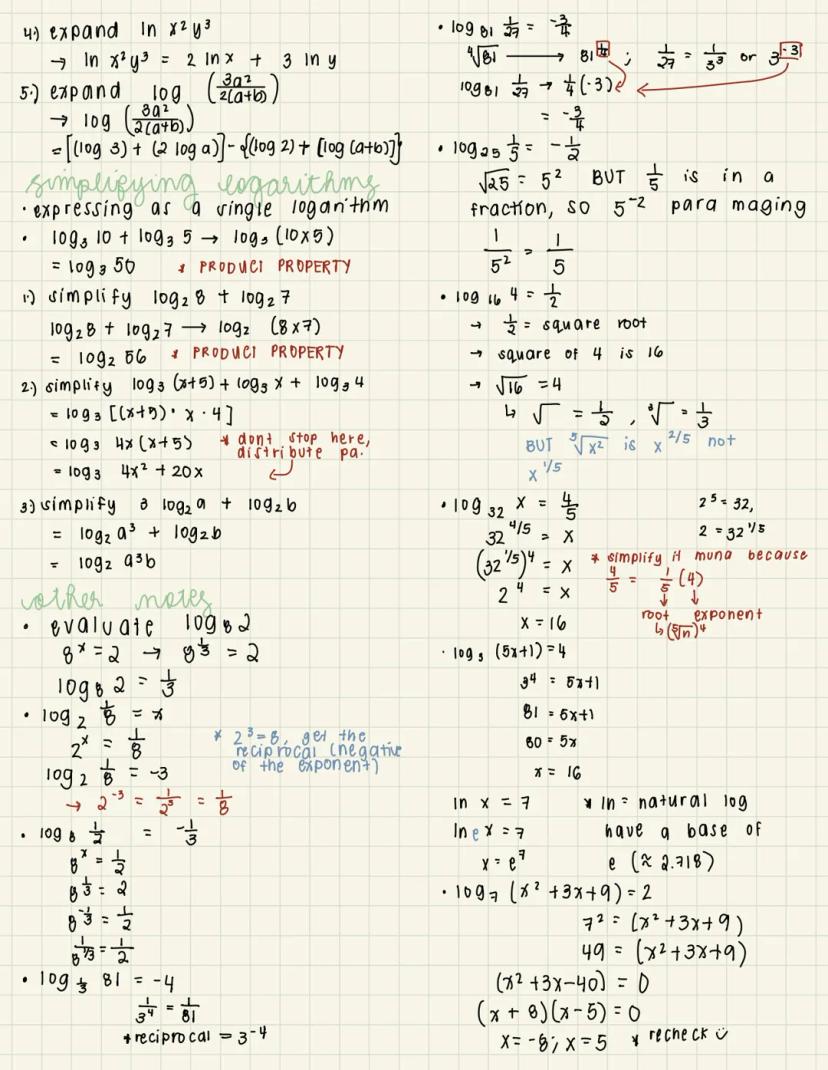 4.) expand ln x²y³
→ ln x²y³ = 2 ln x + 3 ln y
5.) expand log (3a²/2(a+b))
→ log (3a²/2(a+b))
= [(log 3) + (2 log a)] - {(log 2) + [log (a+b)]}
simplifying logarithms
• expressing as a single logarithm
• log₃ 10 + log₃ 5 → log₃ (10×5)
= log₃ 50 * PRODUCT PROPERTY
1.) simplify log₂ 8 + log₂ 7
log₂ 8 + log₂ 7 → log₂ (8×7)
= log₂ 56 * PRODUCT PROPERTY
2.) simplify log₃ (x+5) + log₃ x + log₃ 4
= log₃ [(x+5) • x • 4]
= log₃ 4x (x+5) * dont stop here,
distribute pa.
= log₃ 4x² + 20x
3.) simplify 3 log₂ a + log₂ b
= log₂ a³ + log₂ b
= log₂ a³b
other notes
• evaluate log₈ 2
8ˣ = 2 → 8^1/3 = 2
log₈ 2 = 1/3
• log₂ 1/8 = x
2ˣ = 1/8
* 2³ = 8, get the
reciprocal (negative
of the exponent)
log₂ 1/8 = -3
→ 2⁻³ = 1/2³ = 1/8
• log₈ 1/2 = -1/3
8ˣ = 1/2
8^1/3 = 2
8^-1/3 = 1/2
1/8^1/3 = 1/2
• log 1/3 81 = -4
1/3⁴ = 1/81
* reciprocal = 3⁻⁴
• log₈₁ 1/27 = -3/4
⁴√81 → 81^1/4 ; 1/27 = 1/3³ or 3⁻³
log₈₁ 1/27 → 1/4 (-3)
= -3/4
• log₂₅ 1/5 = -1/2
√25 = 5² BUT 1/5 is in a
fraction, so 5⁻² para maging
1/5² = 1/5
• log₁₆ 4 = 1/2
→ 1/2 = square root
→ square of 4 is 16
→ √16 = 4
↳ √ = 1/2 , ³√ = 1/3
BUT ⁵√x² is x^2/5 not
x^1/5
• log₃₂ x = 4/5 2⁵ = 32,
32^4/5 = x 2 = 32^1/5
(32^1/5)⁴ = x * simplify it muna because
2⁴ = x 4/5 = 1/5 (4)
x = 16 root exponent
↳ (⁵√n)⁴
• log₃ (5x+1) = 4
3⁴ = 5x+1
81 = 5x+1
80 = 5x
x = 16
ln x = 7 * ln = natural log
ln e x = 7 have a base of
x = e⁷ e (≈ 2.718)
• log₇ (x² + 3x + 9) = 2
7² = (x² + 3x + 9)
49 = (x² + 3x + 9)
(x² + 3x - 40) = 0
(x + 8)(x - 5) = 0
x = -8; x = 5 * recheck ü